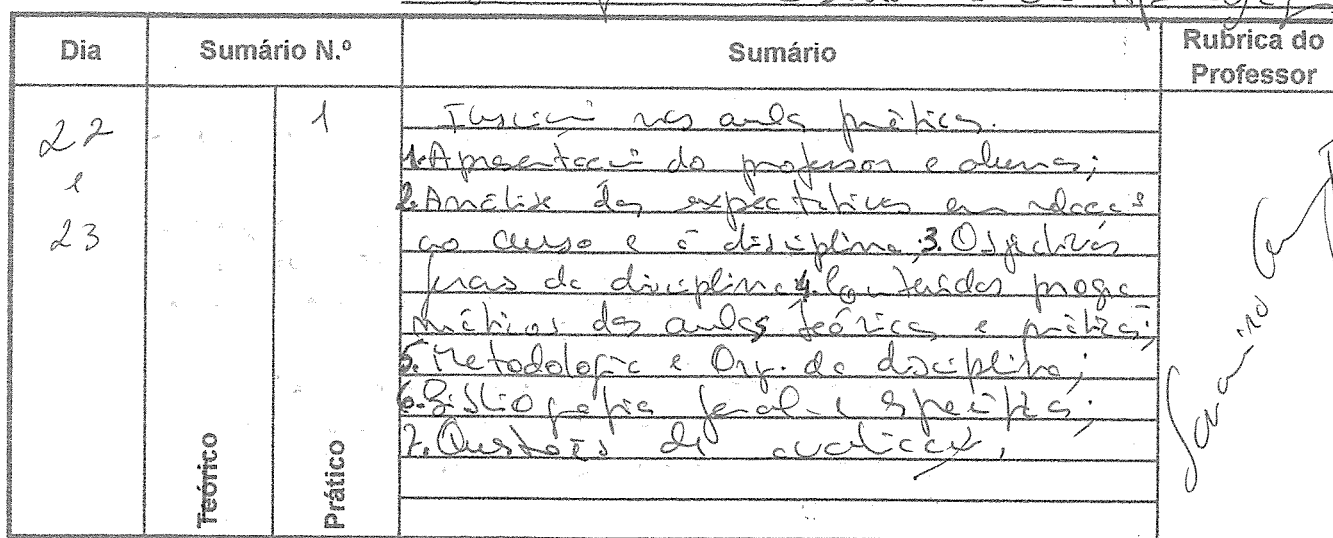 Dia Sumário N.º Sumário Rubrica do Professor
22 e 23
1
Teórico
Prático
nas aulas práticas.
1. Apresentação do professor e alunos;
2. Análise das expectativas em relação
ao curso e à disciplina; 3. Objectivos
gerais da disciplina 4. Conteúdos progra
máticos das aulas teóricas e práticas;
5. Metodologia e Org. da disciplina;
6. Bibliografia geral e específica;
7. Questões de avaliação.